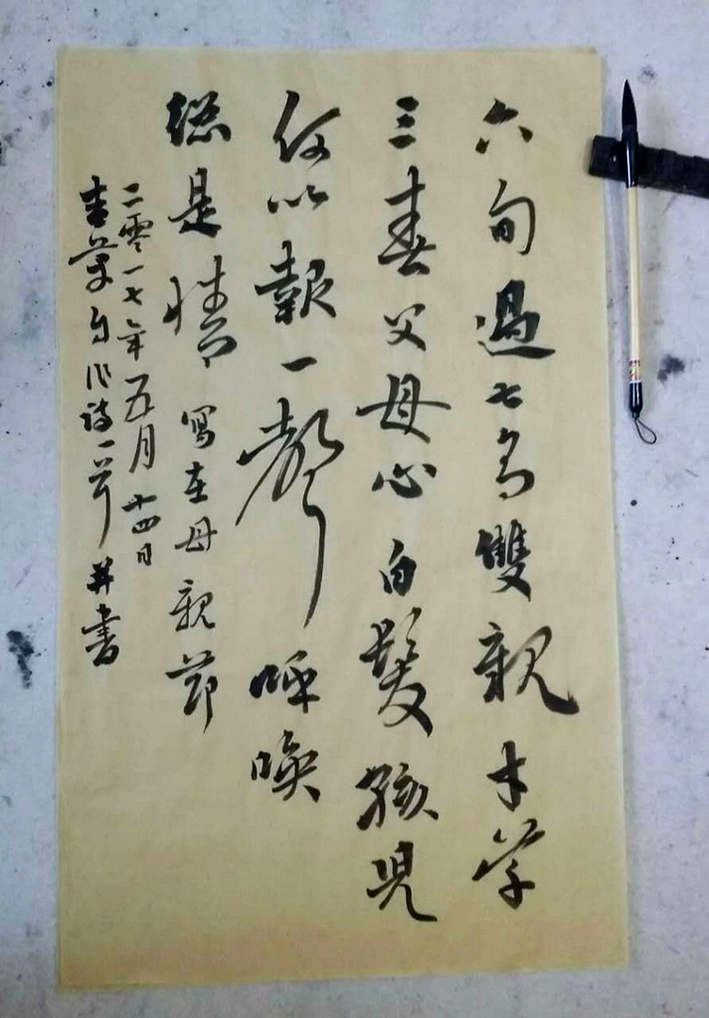 六旬過七為雙親才学
三春父母心白髮孩兒
何以報一聲呼喚
總是情 寫在母親節
二零一七年五月十四日
自作詩一首并書